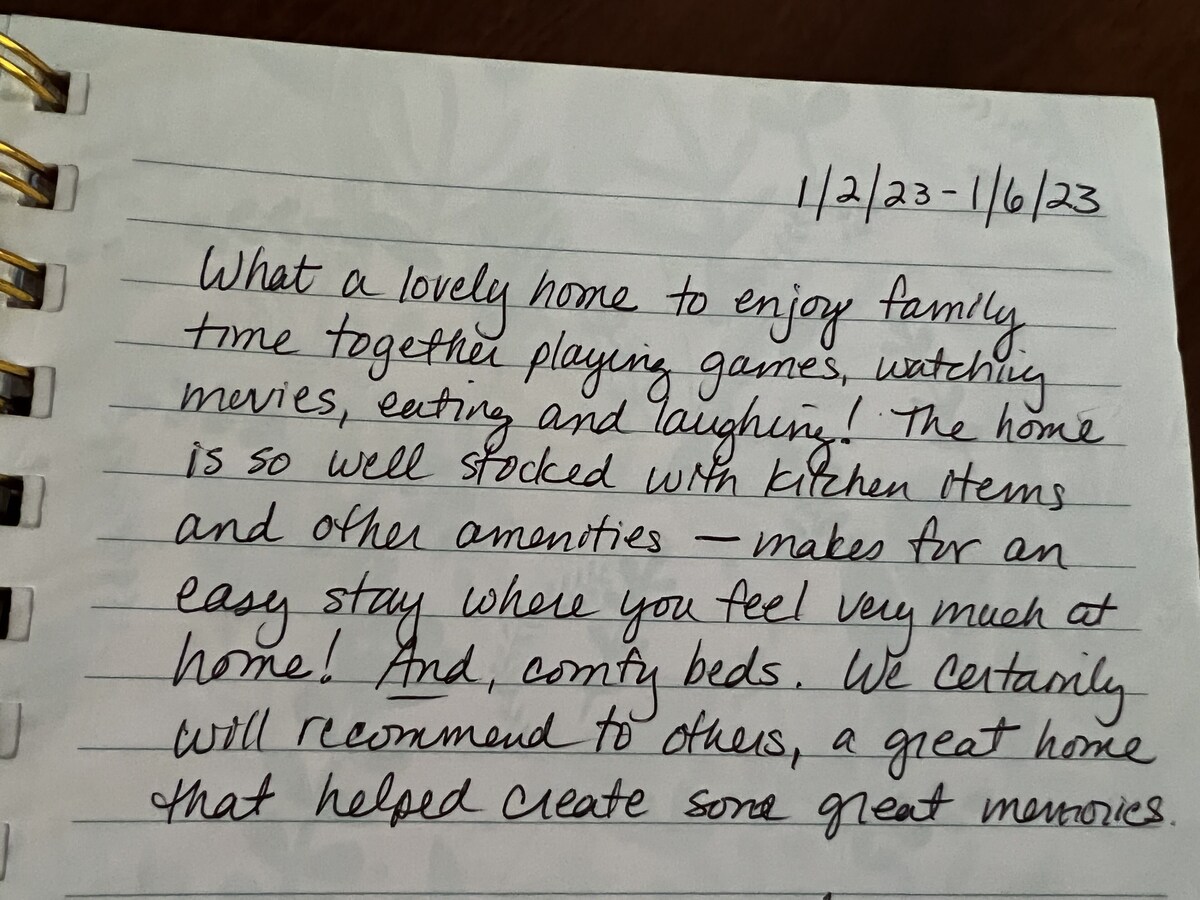 1/2/23-1/6/23
What a lovely home to enjoy family
time together playing games, watching
movies, eating and laughing! The home
is so well stocked with kitchen items
and other amenities — makes for an
easy stay where you feel very much at
home! And, comfy beds. We certainly
will recommend to others, a great home
that helped create some great memories.